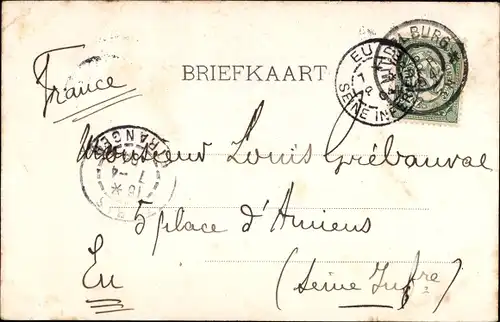 France
BRIEFKAART
EU
SEINE INF
BURG
ETRANGER
Monsieur Louis Grébauval
5 place d'Amiens
Eu
(Seine Infre)